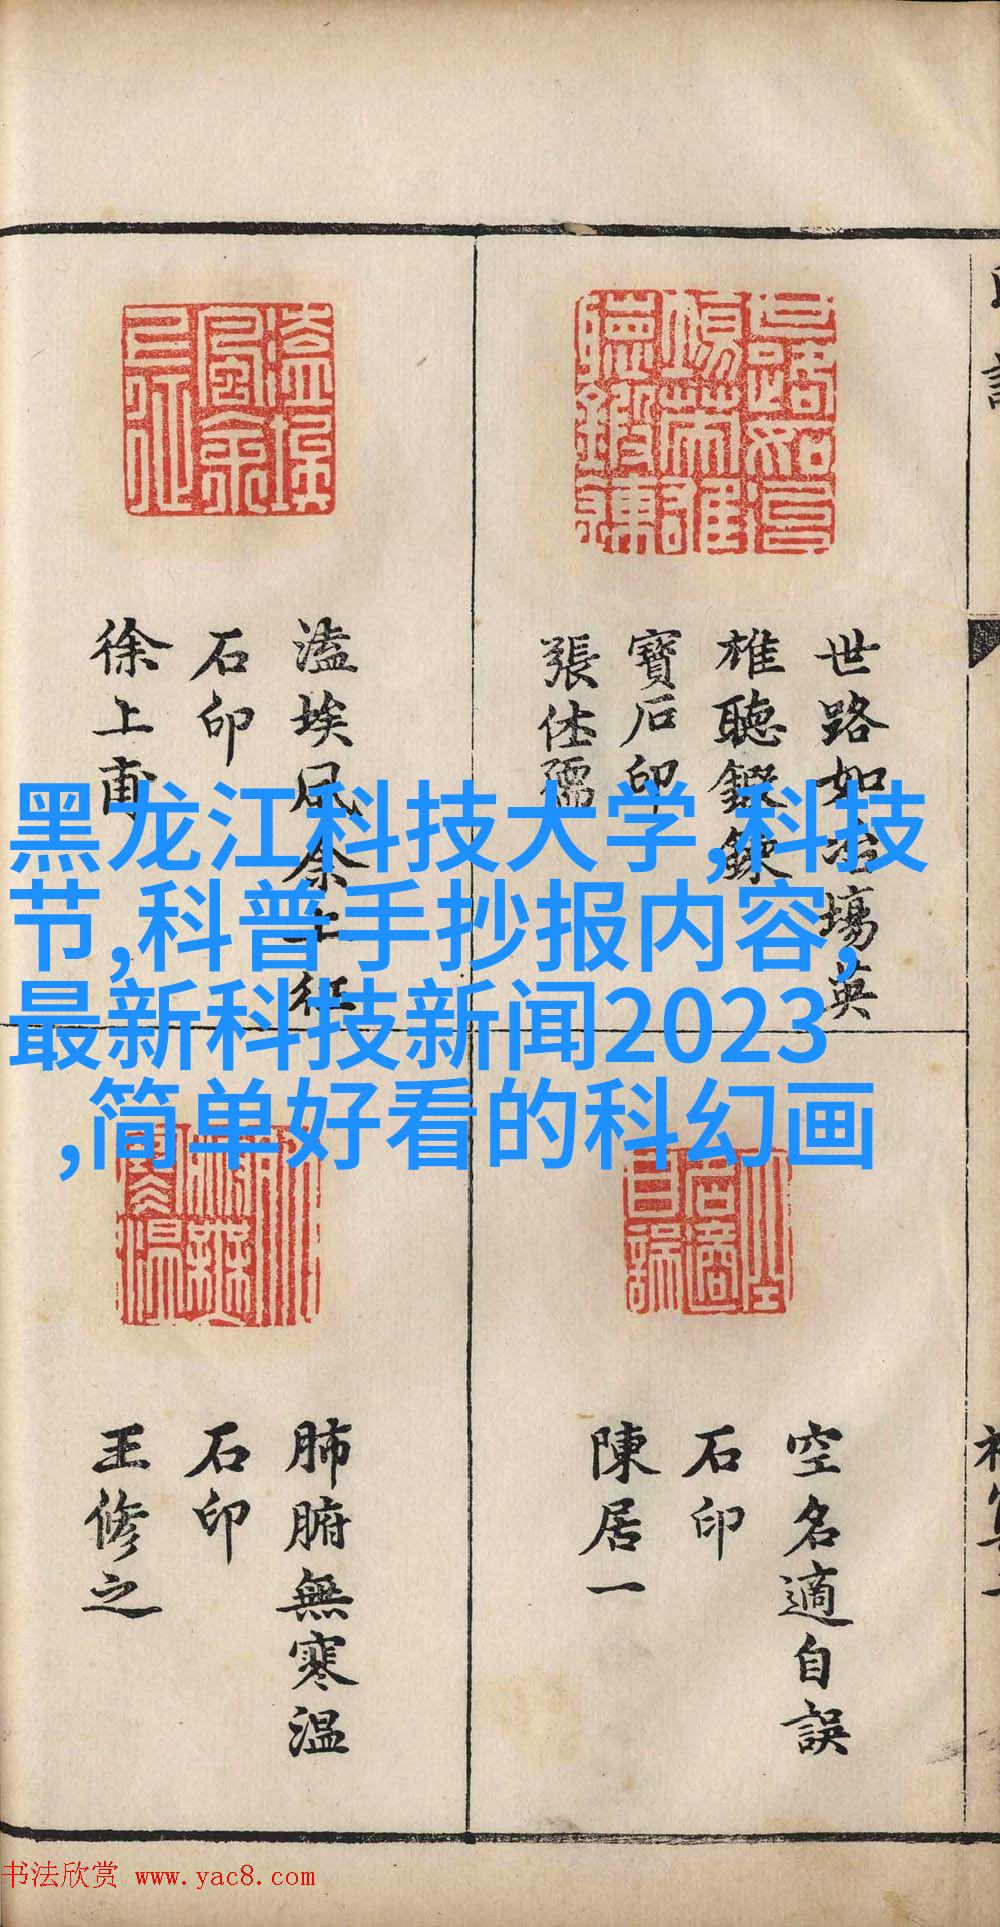 世路如冶場英
雄聽鍛鍊
寶石印
張仕孺
溘埃風余上征
石印
徐上甫
空名適自誤
石印
陳居一
肺腑無寒温
石印
王修之
黑龙江科技大学,科技
节,科普手抄报内容,
最新科技新闻2023
,简单好看的科幻画
书法欣赏 www.yac8.com